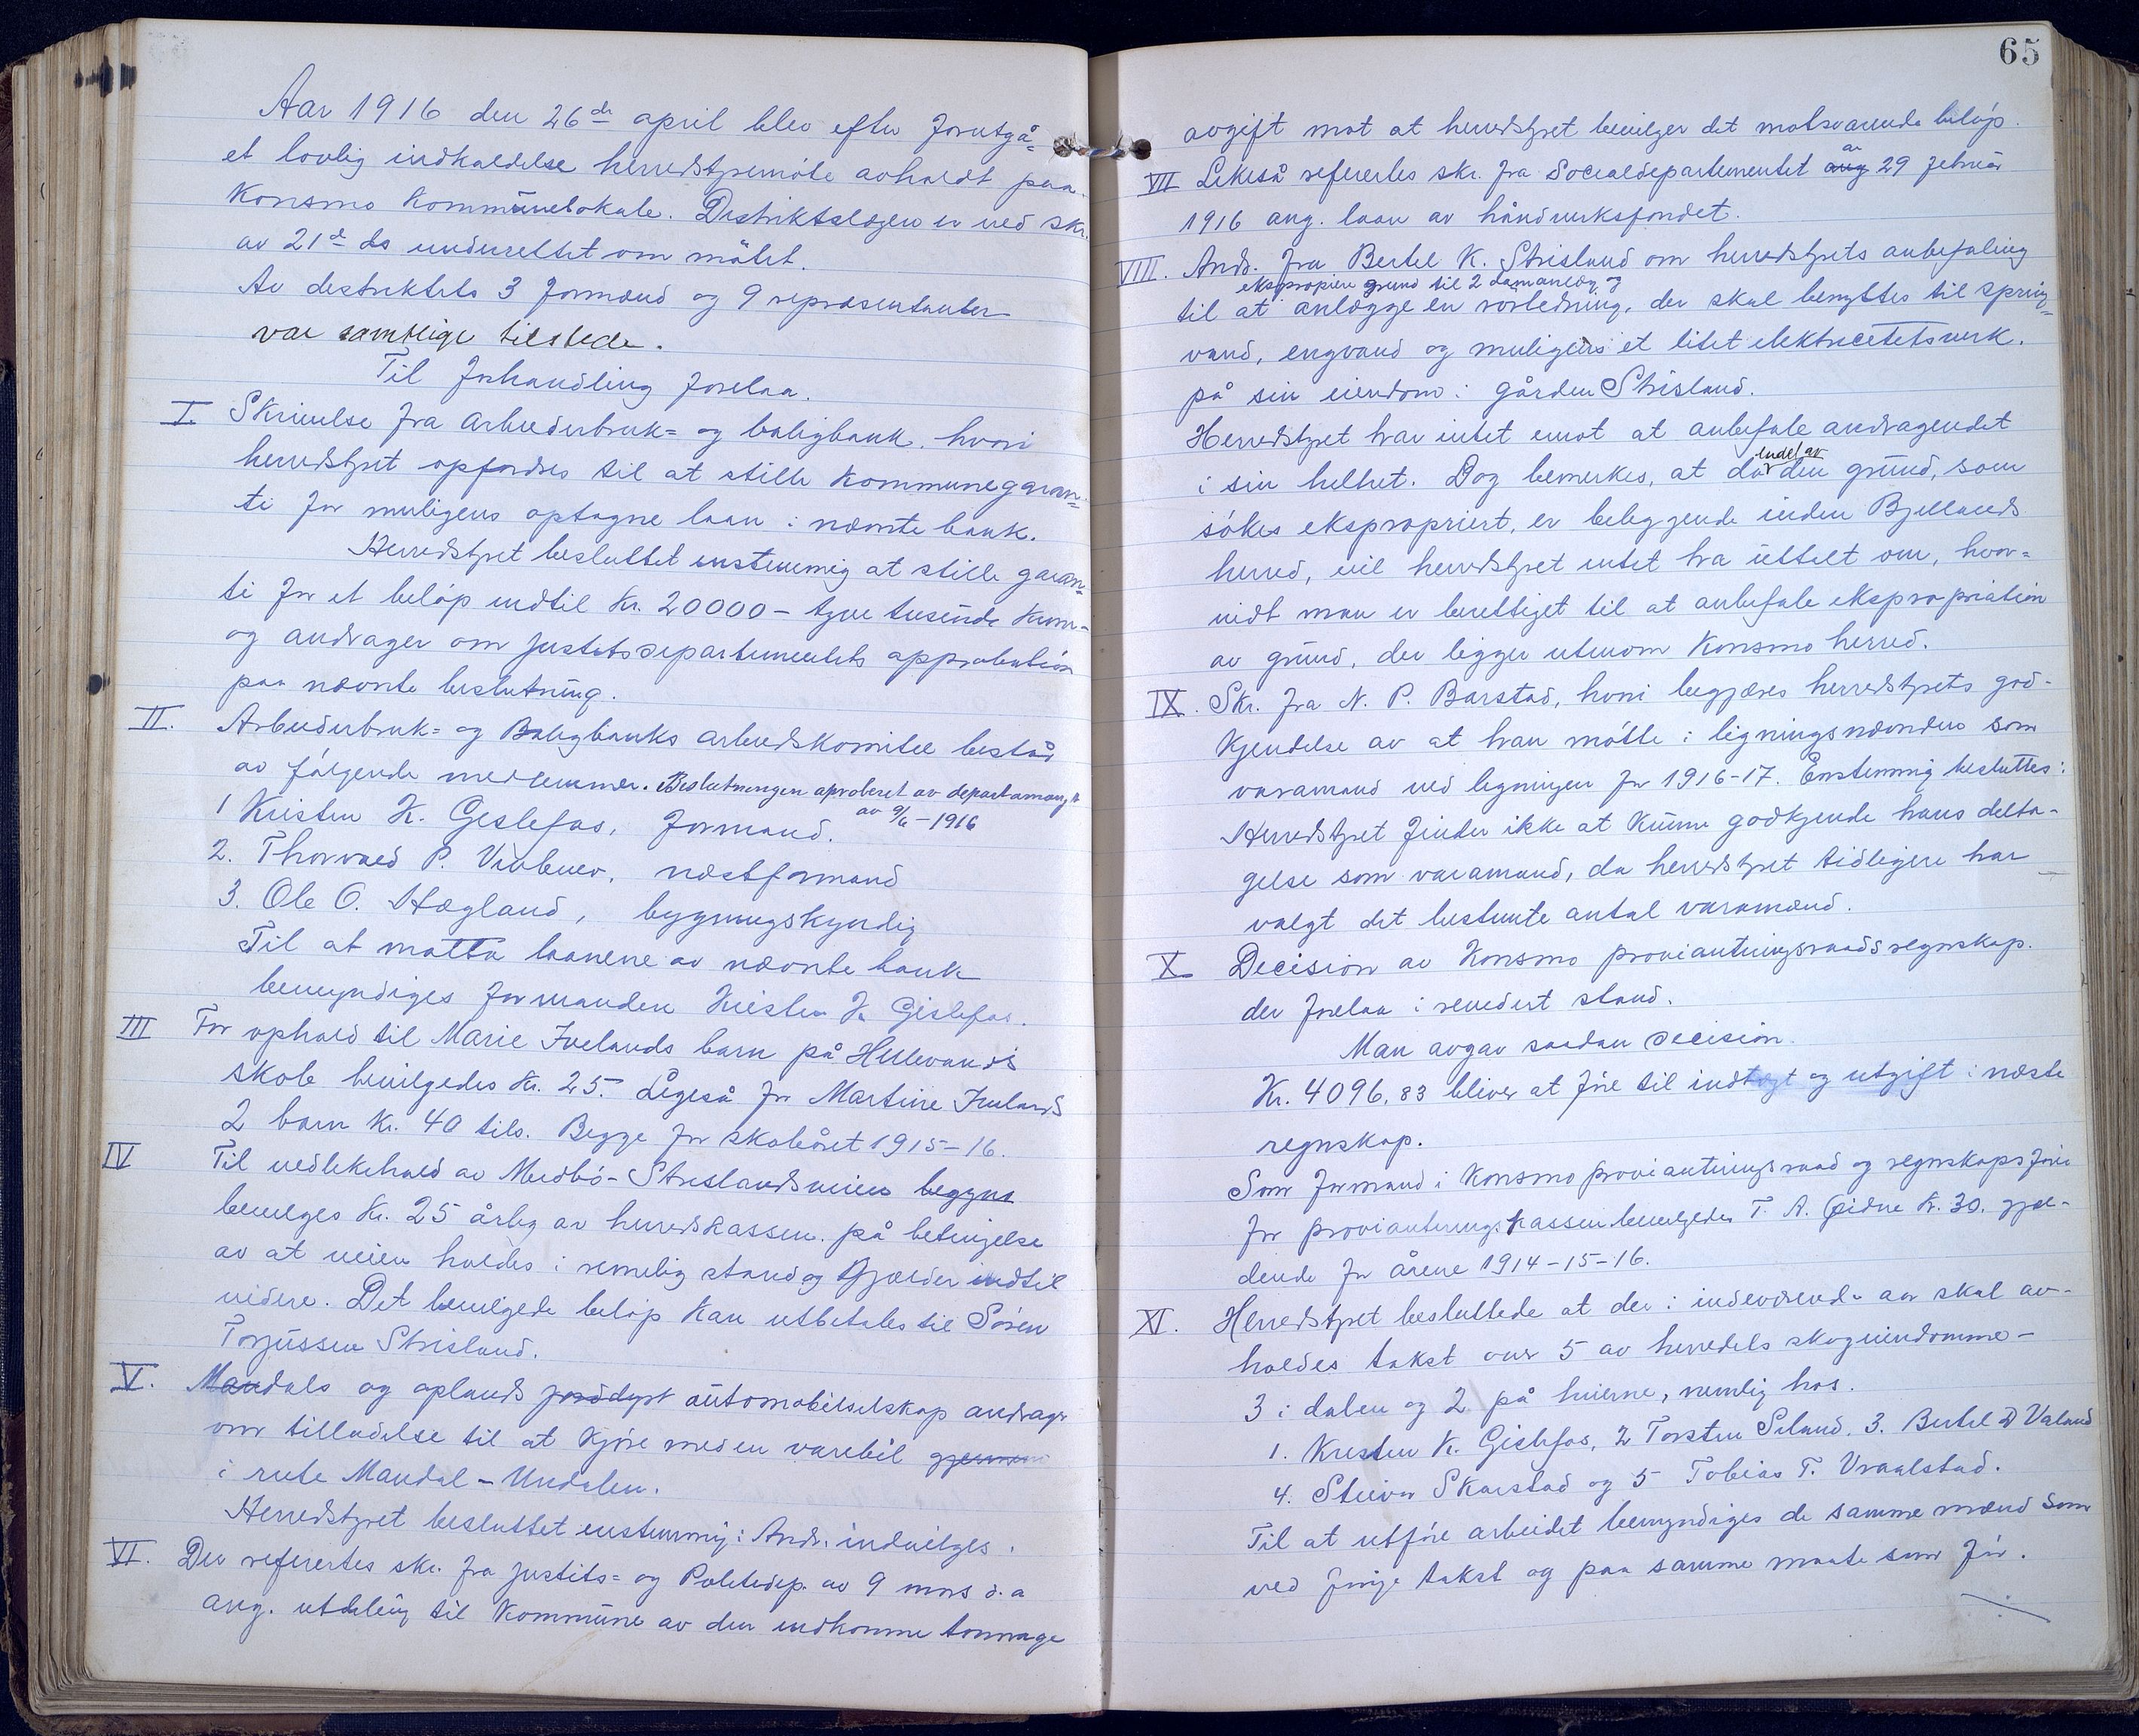 Aar 1916 den 26de april blev efter forutgå=
et lovlig indkaldelse herredstyremöte avholdt paa
Konsmo Kommunelokale. Distriktslægen er ved skr.
av 21de ds underrettet om mötet.
Av destriktets 3 formænd og 9 repræsentanter
var samtlige tilstede.
Til forhandling forelaa.
I. Skrivelse fra arbeiderbruk= og boligbank, hvori
herredstyret opfordres til at stille Kommunegaran=
ti for muligens optagne laan i nævnte bank.
Herredstyret besluttet enstemmig at stille garan=
ti for et belöp indtil Kr. 20000 - tyve tusinde Kroner -
og andrager om justitsdepartementets approbation
paa nævnte beslutning.
II. Arbeiderbruk= og Boligbanks arbeidskomite bestaar
av fölgende medlemmer. Beslutningen aproberet av departamanget
av 9/6 - 1916
1 Kristen K. Geslefos, formand.
2. Thorvald P. Viblemo, næstformand
3. Ole O. Hægland, bygningskyndig
Til at motta laanene av nævnte bank
bemyndiges formanden Kristen K. Gislefos.
III For ophold til Marie Ivelands barn på Hullevands
skole bevilgedes Kr. 25. Ligeså for Martine Ivelands
2 barn Kr. 40 tils. Begge for skoleåret 1915-16.
IV Til vedlikehold av Medbö-Strislandsveien begyns
bevilges Kr. 25 årlig av herredskassen på betingelse
av at veien holdes i rimelig stand og gjælder indtil
videre. Det bevilgede belöp kan utbetales til Sören
Torjussen Strisland.
V. Mandals og oplands automobilselskap andrager
om tilladelse til at kjöre med en varebil gjennem
i rute Mandal - Undalen.
Herredstyret besluttet enstemmig: Andr. indvilges.
VI. Der refertes skr. fra justits= og Politidep. av 9 mns d.a
ang. utdeling til Kommune av den indkomne tonnage
65
avgift mot at herredstyret bevilger det motsvarende belöp.
VII Likeså refertes skr. fra Socialdepartementet ang av 29 februar
1916 ang. laan av håndverksfondet.
VIII. Andr. fra Bertel K. Strisland om herredstyrets anbefaling
ekspropiere grund til 2 damanlæg og
til at anlægge en rörledning, der skal benyttes til spring=
vand, engvand og muligens et litet elektricetetsverk.
på sin eiendom: gården Strisland.
Herredstyret har intet imot at anbefale andragendet
i sin helhet. Dog bemerkes, at da endel av den grund, som
sökes ekspropriert, er beliggende inden Bjellands
herred, vil herredstyret intet ha uttalt om, hvor=
vidt man er berettiget til at anbefale ekspropriation
av grund, der ligger utenom Konsmo herred.
IX. Skr. fra N. P. Barstad, hvori begjæres herredstyrets god-
kjendelse av at han mötte i ligningsnævnden som
varamand ved ligningen for 1916-17. Enstemmig besluttes:
Herredstyret finder ikke at kunne godkjende hans delta-
gelse som varamand, da herredstyret tidligere har
valgt det bestemte antal varamænd.
X Decision av Konsmo provianteringsraads regnskap.
der forelaa i revidert stand.
Man avgav saadan decision.
Kr. 4096,83 bliver at före til indtægt og utgift i næste
regnskap.
Som formand i Konsmo provianteringsraad og regnskapsförer
for provianteringskassen bevilgedes T. A. Öidne Kr. 30. gjæl-
dende for årene 1914-15-16.
XI. Herredstyret besluttede at der i indeværende aar skal av-
holdes takst over 5 av herredets skogeiendomme -
3 i dalen og 2 på heierne, nemlig hos.
1. Kristen K. Gislefos, 2 Torsten Seland, 3. Bertel D Valand
4. Steiner Skarstad og 5 Tobias T. Vraalstad.
Til at utföre arbeidet bemyndiges de samme mænd som
ved forrige takst og paa samme maate som för.